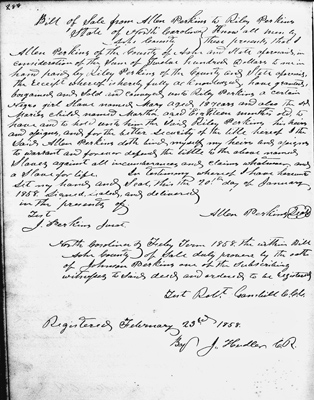 Bill of Sale from Allen Perkins to Riley Perkins
State of North Carolina Know all men by
these presents that I
Allen Perkins of the County of Ashe and State aforesaid in
consideration of the Sum of Twelve hundred Dollars to me in
hand paid by Riley Perkins of the County and State aforesaid,
the receipt whereof is hereby fully acknowledged, have granted,
bargained and sold and conveyed unto Riley Perkins a certain
Negro girl Slave named Mary aged 18 years and also the
child named Martha aged Eighteen months old to
have and to hold unto him the Said Riley Perkins his heirs
and assigns, and for the better security of the title hereof I the
Said Allen Perkins doth bind myself my heirs and assigns
to warrant and forever defend the title to the above named
Slaves against all incumberances and claims whatsoever, and
a Slave for life. In testimony whereof I have hereunto
Set my hand and Seal, this the 20th day of January
1858. Signed, sealed, and delivered
in the presents of
Test
J Perkins Jurat
Allen Perkins Seal
North Carolina Feby Term 1858. The within Bill
Ashe County of Sale duly proven by the oath
of Johnson Perkins one of the Subscribing
witnesses to said deed and ordered to be registered
Test Robt. Gambill C. Clk
Registered February 23rd 1858.
By J. C.R.